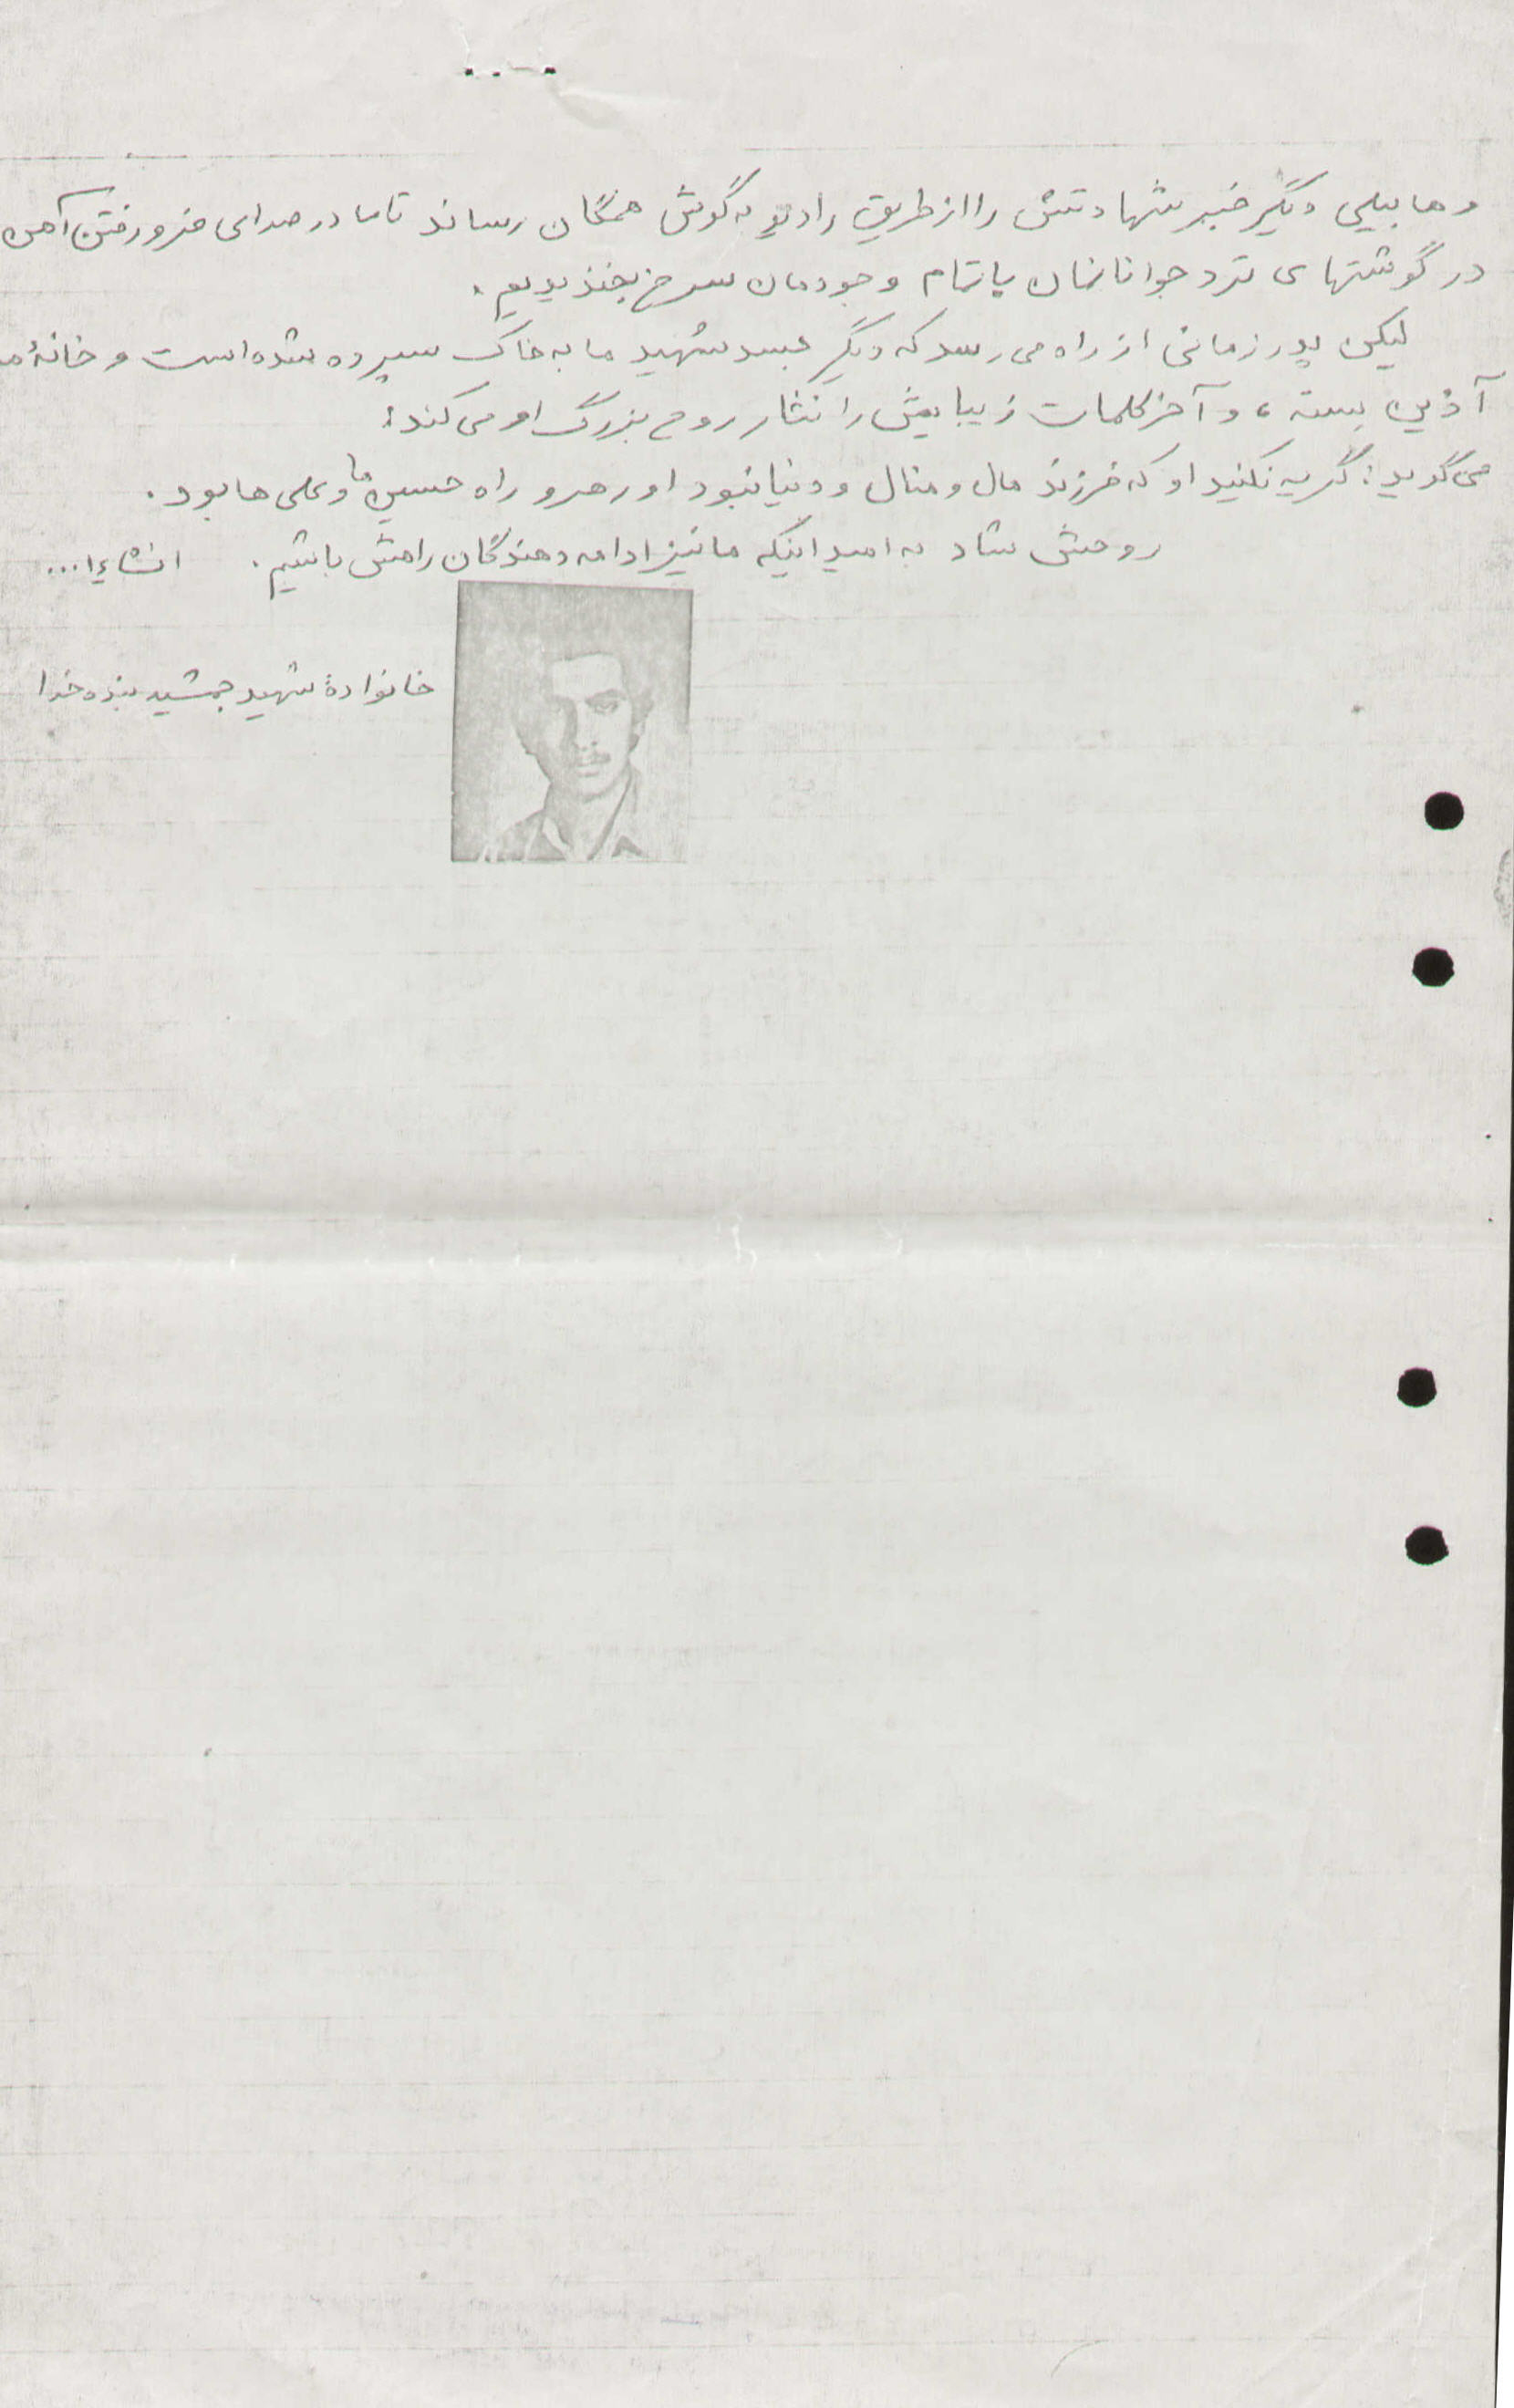 وهابیلی دیگر خبر شهادتش را از طریق رادیو به گوش همگان رساند تا ما در صدای فرو رفتن آهن
در گوشتهای ترد جوانانمان با تمام وجودمان سرخ بخندیدیم.
لیکن پدر زمانی از راه می رسد که دیگر جسد شهید ما به خاک سپرده شده است و خانهٔ ما
آذین بسته ، و آخر کلمات زیبایش را نثار روح بزرگ او می کند:
می گوید: گریه نکنید او که فرزند مال و منال و دنیا نبود او رهرو راه حسین ها و علی ها بود.
روحش شاد به امید اینکه ما نیز ادامه دهندگان راهش باشیم. انشاءا...
خانوادهٔ شهید جمشید بنده خدا